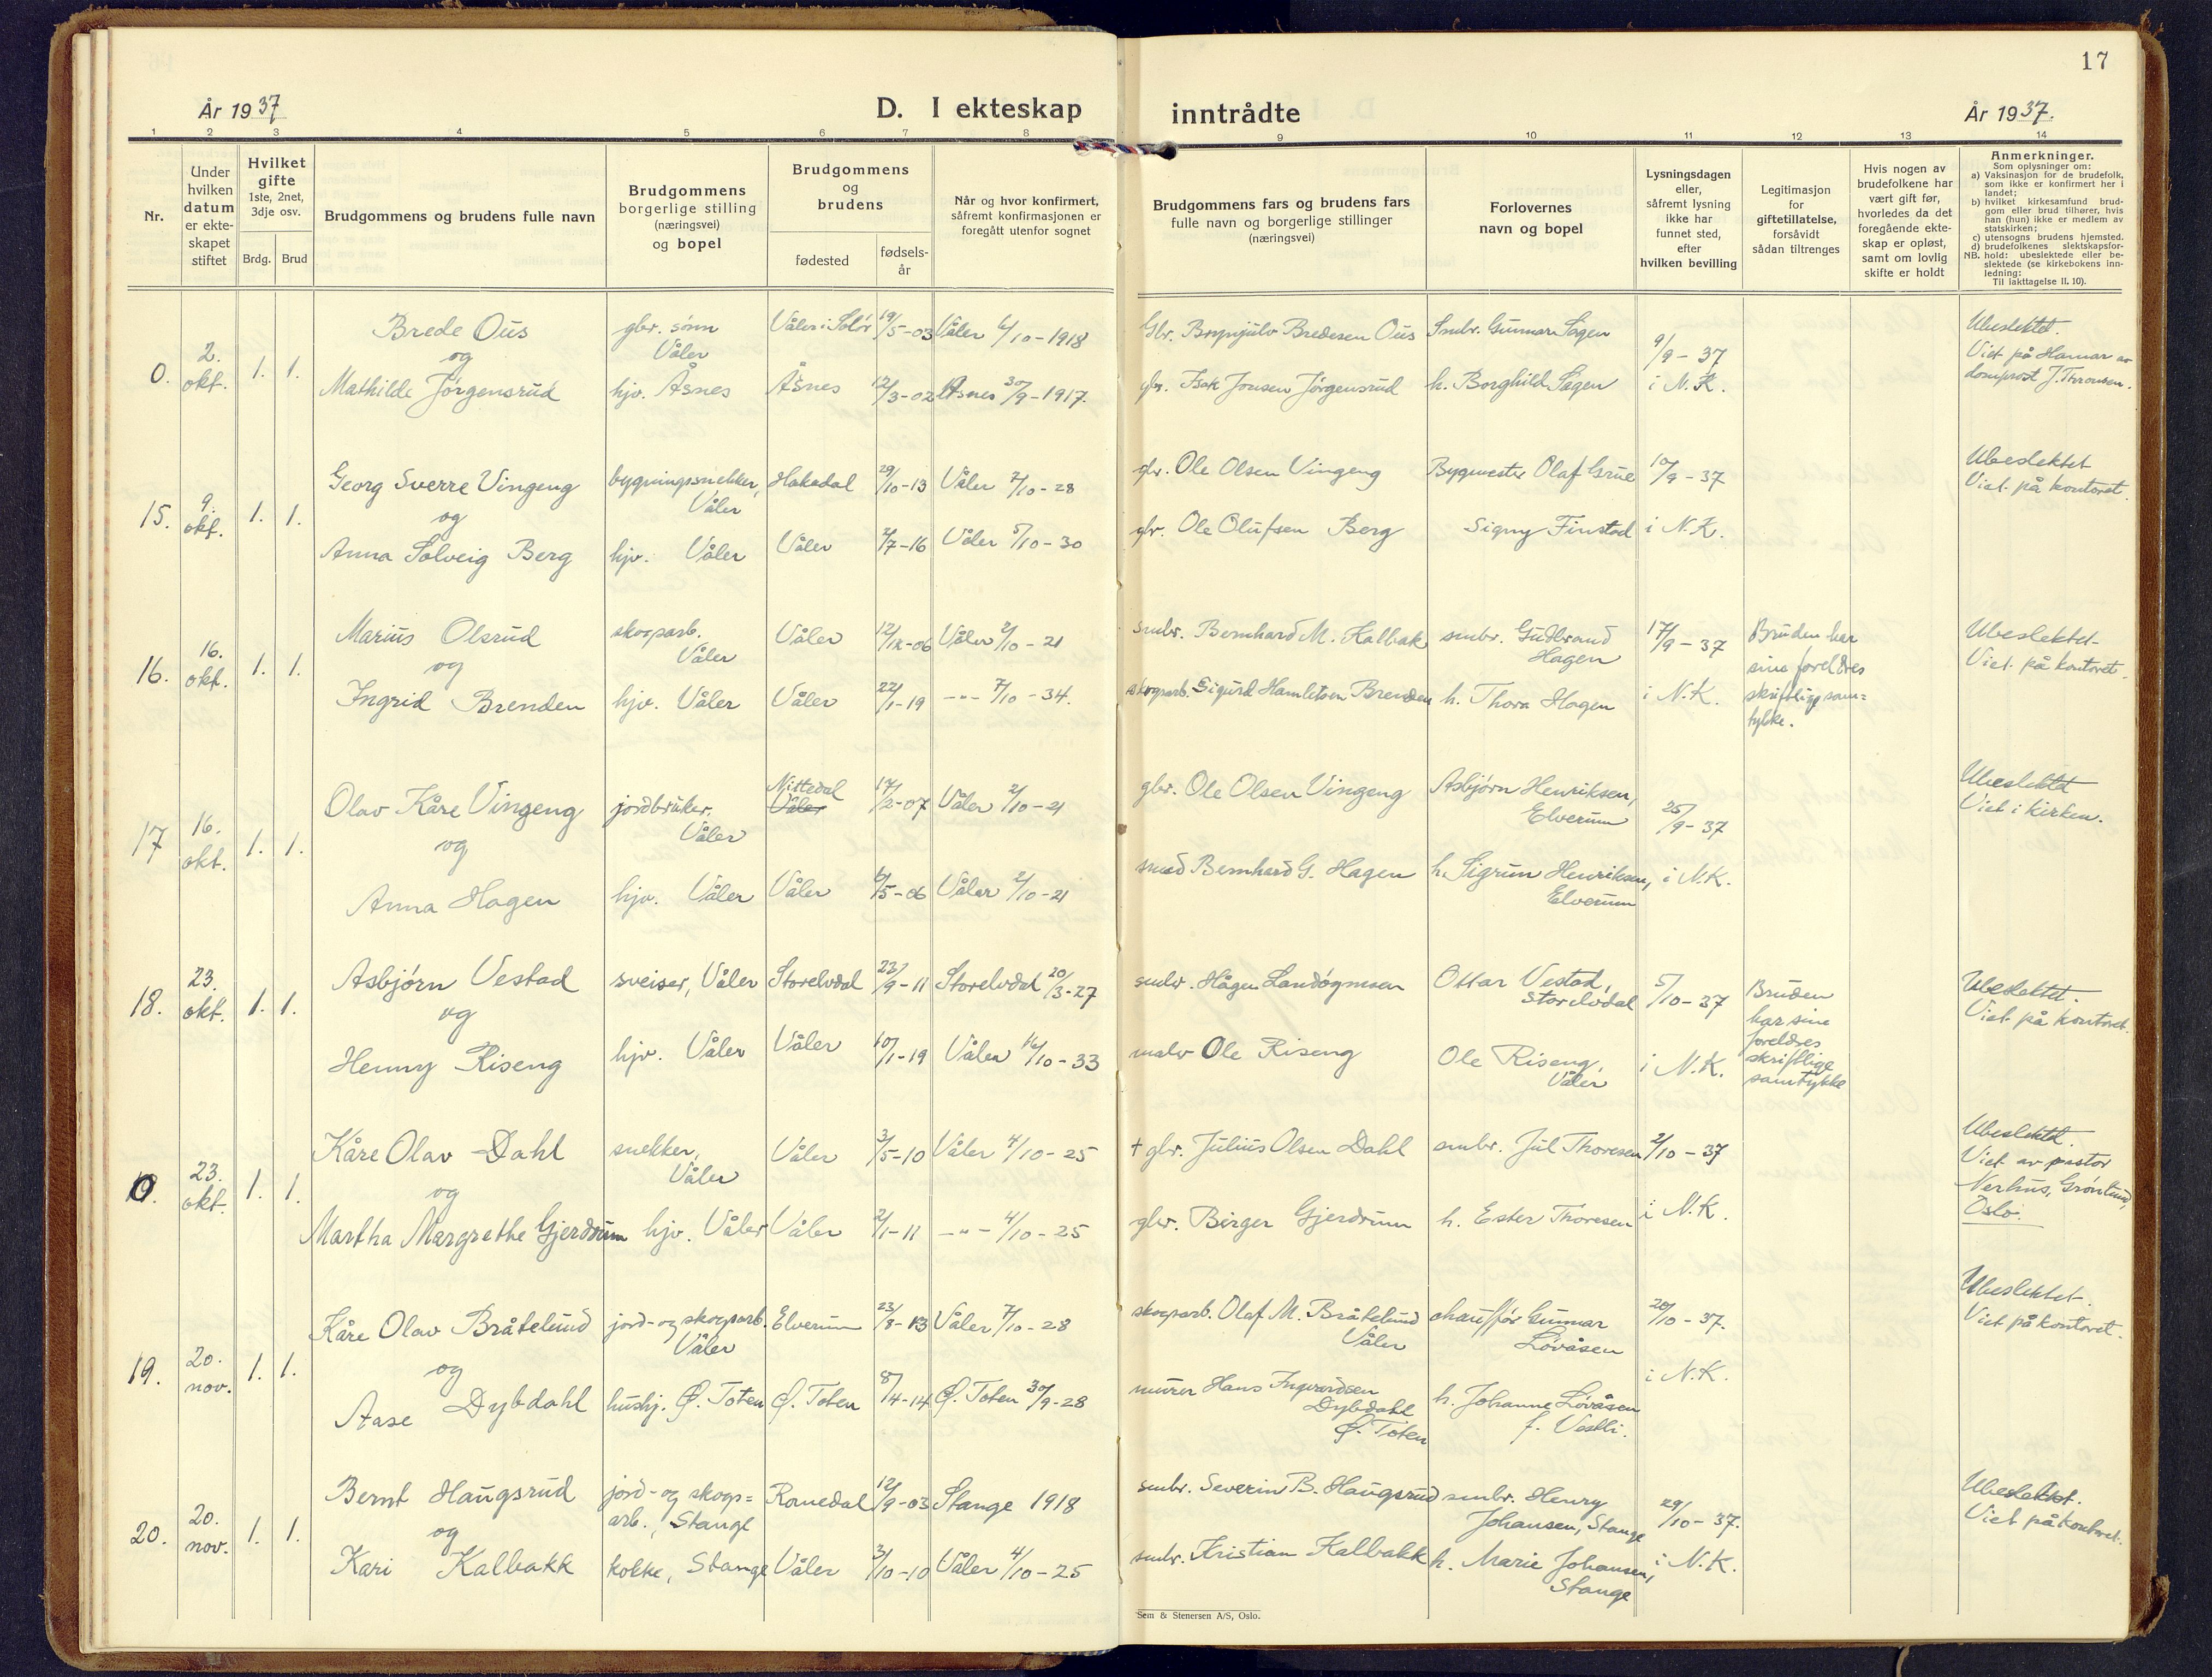 17
År 1937
D. I ekteskap inntrådte
År 1937.
1 2 3 4 5 6 7 8 9 10 11 12 13 14
Nr.
Under hvilken datum er ekteskapet stiftet
Hvilket gifte 1ste, 2net, 3dje osv.
Brdg. Brud
Brudgommens og brudens fulle navn
Brudgommens borgerlige stilling (næringsvei) og bopel
Brudgommens og brudens
fødested
fødsels-år
Når og hvor konfirmert, såfremt konfirmasjonen er foregått utenfor sognet
Brudgommens fars og brudens fars fulle navn og borgerlige stillinger (næringsvei)
Forlovernes navn og bopel
Lysningsdagen eller, såfremt lysning ikke har funnet sted, efter hvilken bevilling
Legitimasjon for giftetillatelse, forsåvidt sådan tiltrenges
Hvis nogen av brudefolkene har vært gift før, hvorledes da det foregående ekteskap er opløst, samt om lovlig skifte er holdt
Anmerkninger.
Som oplysninger om:
a) Vaksinasjon for de brudefolk, som ikke er konfirmert her i landet;
b) hvilket kirkesamfund brudgom eller brud tilhører, hvis han (hun) ikke er medlem av statskirken;
c) utensogns brudens hjemsted.
d) brudefolkenes slektskapsfor-
NB. hold: ubeslektede eller beslektede (se kirkebokens innledning:
Til iakttagelse II. 10).
0. 2. okt. 1. 1.
Brede Ous gbr. sønn Våler Våler i Solør 19/5-03 Våler 6/10-1918 Gbr. Brynjulv Bredesen Ous Smbr. Gunnar Sagen 9/9-37
og
Mathilde Jørgensrud hjv. Åsnes Åsnes 12/3-02 Åsnes 30/9-1917. gbr. Isak Jonsen Jørgensrud h. Borghild Sagen i N.K.
Ubeslektet.
Viet på Hamar av
domprost J. Thronsen.
15. 9. okt. 1. 1.
Georg Sverre Vingeng bygningssnekker, Våler Hakadal 29/10-13 Våler 7/10-28 gbr. Ole Olsen Vingeng Bygmester Olaf Grue 10/9-37
og
Anna Solveig Berg hjv. Våler Våler 2/7-16 Våler 5/10-30 gbr. Ole Olufsen Berg Signy Finstad i N.K.
Ubeslektet
Viet på kontoret.
16. 16. okt. 1. 1.
Marius Olsrud skogsarb. Våler Våler 12/12-06 Våler 2/10-21 smbr. Bernhard M. Kalbak smbr. Gudbrand Hagen 17/9-37
og
Ingrid Brenden hjv. Våler Våler 22/1-19 -"- 7/10-34. skogsarb. Sigurd Hamletsen Brenden h. Thora Hagen i N.K.
Bruden har
sine foreldres
skriftlige sam=
tykke.
Ubeslektet
Viet på kontoret.
17 16. okt. 1. 1.
Olav Kåre Vingeng jordbruker. Våler Nittedal Våler 17/2-07 Våler 2/10-21 gbr. Ole Olsen Vingeng Asbjørn Henriksen, Elverum 25/9-37
og
Anna Hagen hjv. Våler Våler 6/5-06 Våler 2/10-21 smed Bernhard G. Hagen h. Sigrun Henriksen, Elverum i N.K.
Ubeslektet
Viet i kirken.
18. 23. okt. 1. 1.
Asbjørn Vestad sveiser, Våler Storelvdal 23/9-11 Storelvdal 20/3-27 smbr. Hågen Ottar Vestad, Storelvdal 5/10-37
og
Henny Riseng hjv. Våler Våler 10/1-19 Våler 16/10-33 Ole Riseng Ole Riseng, Våler i N.K.
Bruden
har sine
foreldres
skriftlige
samtykke
Ubeslektet.
Viet på kontoret.
0 23. okt. 1. 1.
Kåre Olav Dahl snekker, Våler Våler 3/5-10 Våler 4/10-25 + gbr. Julius Olsen Dahl smbr. Jul Thoresen 2/10-37
og
Martha Margrethe Gjerdrum hjv. Våler Våler 2/1-11 -"- 4/10-25 gbr. Birger Gjerdrum h. Ester Thoresen i N.K.
Ubeslektet.
Viet av pastor
Nerhus, Grønlund,
Oslo.
19. 20. nov. 1. 1.
Kåre Olav Bråtelund jord- og skogsarb. Våler Elverum 23/8-13 Våler 7/10-28 skogsarb. Olaf M. Bråtelund Våler chauffør Gunnar Løvåsen 20/10-37.
og
Aase Dybdahl hushj. Ø. Toten Ø. Toten 8/4-14 Ø. Toten 30/9-28 murer Hans Ingvardsen Dybdahl Ø. Toten h. Johanne Løvåsen f. Vestli. i N.K.
Ubeslektet.
Viet på kontoret.
20. 20. nov. 1. 1.
Bernt Haugsrud jord- og skogs= arb., Stange Romedal 12/9-03 Stange 1918 smbr. Severin B. Haugsrud smbr. Henry Johansen, Stange 29/10-37.
og
Kari Kalbakk kokke, Stange Våler 3/10-10 Våler 4/10-25 smbr. Kristian Kalbakk h. Marie Johansen, Stange i N.K.
Ubeslektet.
Viet på kontoret.
Sem & Stenersen A/S, Oslo.